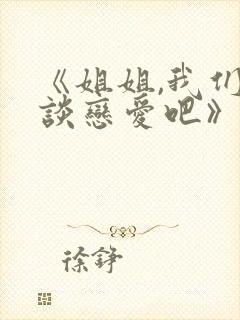 《姐姐,我们
談戀愛吧》
徐錚